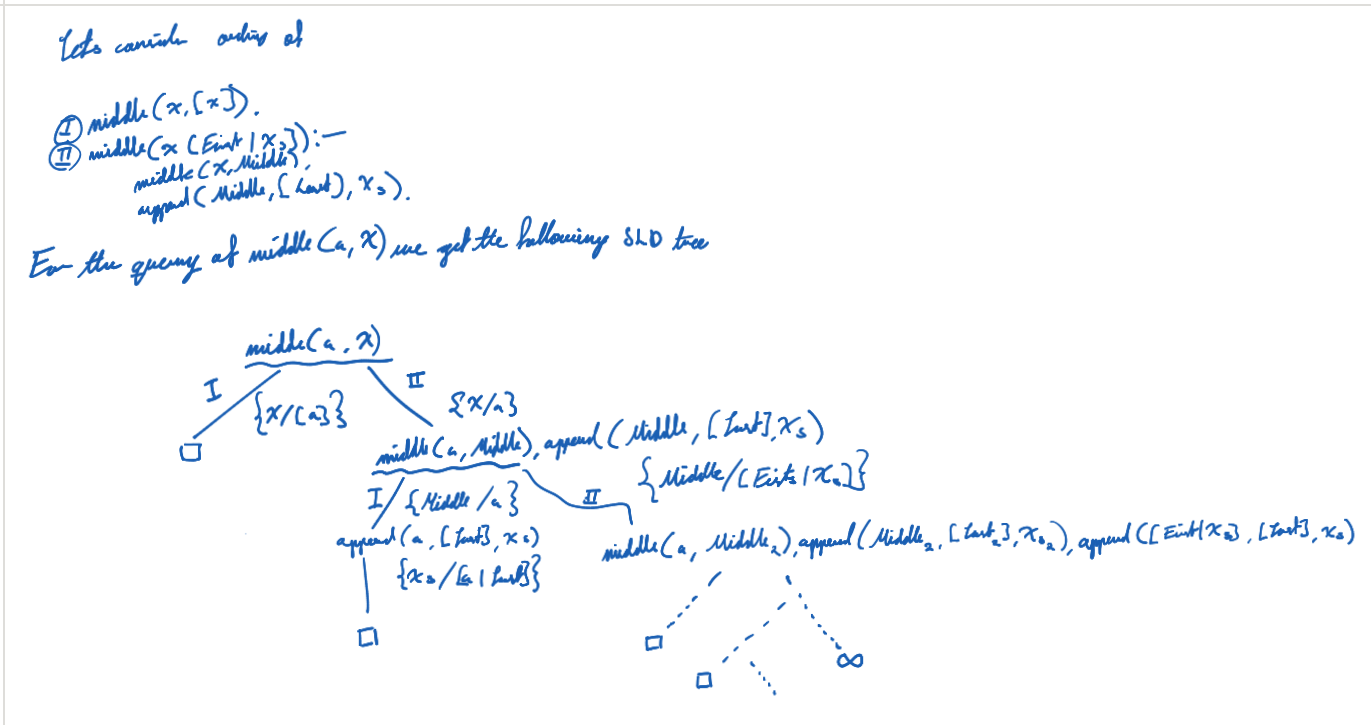 Lets consider ordering of
I middle(x,[x]).
II middle(x [First | Xs]):-
middle(X,Middle),
append(Middle,[Last],Xs).
For the query of middle(a,X) we get the following SLD tree
middle(a,X)
I {X/[a]} II {X/a}
□ middle(a,Middle), append(Middle,[Last],Xs)
I {Middle/a} II {Middle/[First|Xs]}
append(a,[Last],Xs) middle(a, Middle₂), append(Middle₂,[Last₂],Xs₂), append([First|Xs],[Last],Xs)
{Xs/[a|Last]}
□ □ □ ∞